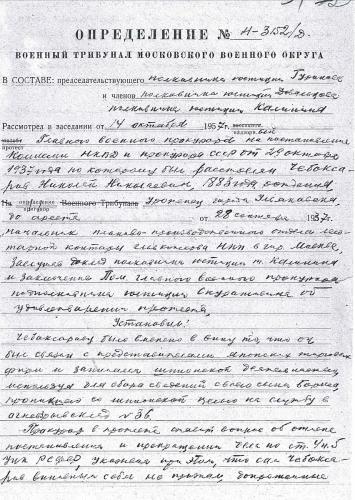 ОПРЕДЕЛЕНИЕ № Н-3152/Д.
ВОЕННЫЙ ТРИБУНАЛ МОСКОВСКОГО ВОЕННОГО ОКРУГА
В СОСТАВЕ: председательствующего полковника юстиции
и членов полковника юстиции
полковника юстиции Калинина
Рассмотрел в заседании от 14 октября 1957г.
протест
Главного военного прокурора на постановление
Комиссии НКВД и прокурора СССР от октября
1937 года по которому был расстрелян Чебокса-
ров Николай Николаевич, 1883 года рождения,
На определение Военного Трибунала уроженец города
приговор
до ареста от 28 сентября 1937г.
начальник планово-производственного отдела
конторы в гор. Москве,
Заслушав доклад полковника юстиции т. Калинина
и заключение Пом. главного военного прокурора
подполковника юстиции об
удовлетворении протеста,
Установил:
Чебоксарову было вменено в вину то, что он
был связан с представителями японских торговых
фирм и занимался шпионской деятельностью,
используя для сбора сведений своего сына
со шпионской целью на службу в
Прокурор в протесте ставит вопрос об отмене
постановления и прекращении дела по ст. 4 п. 5
УПК РСФСР, указывая при этом, что сам Чебокса-
ров виновным себя не признал, допрошенные